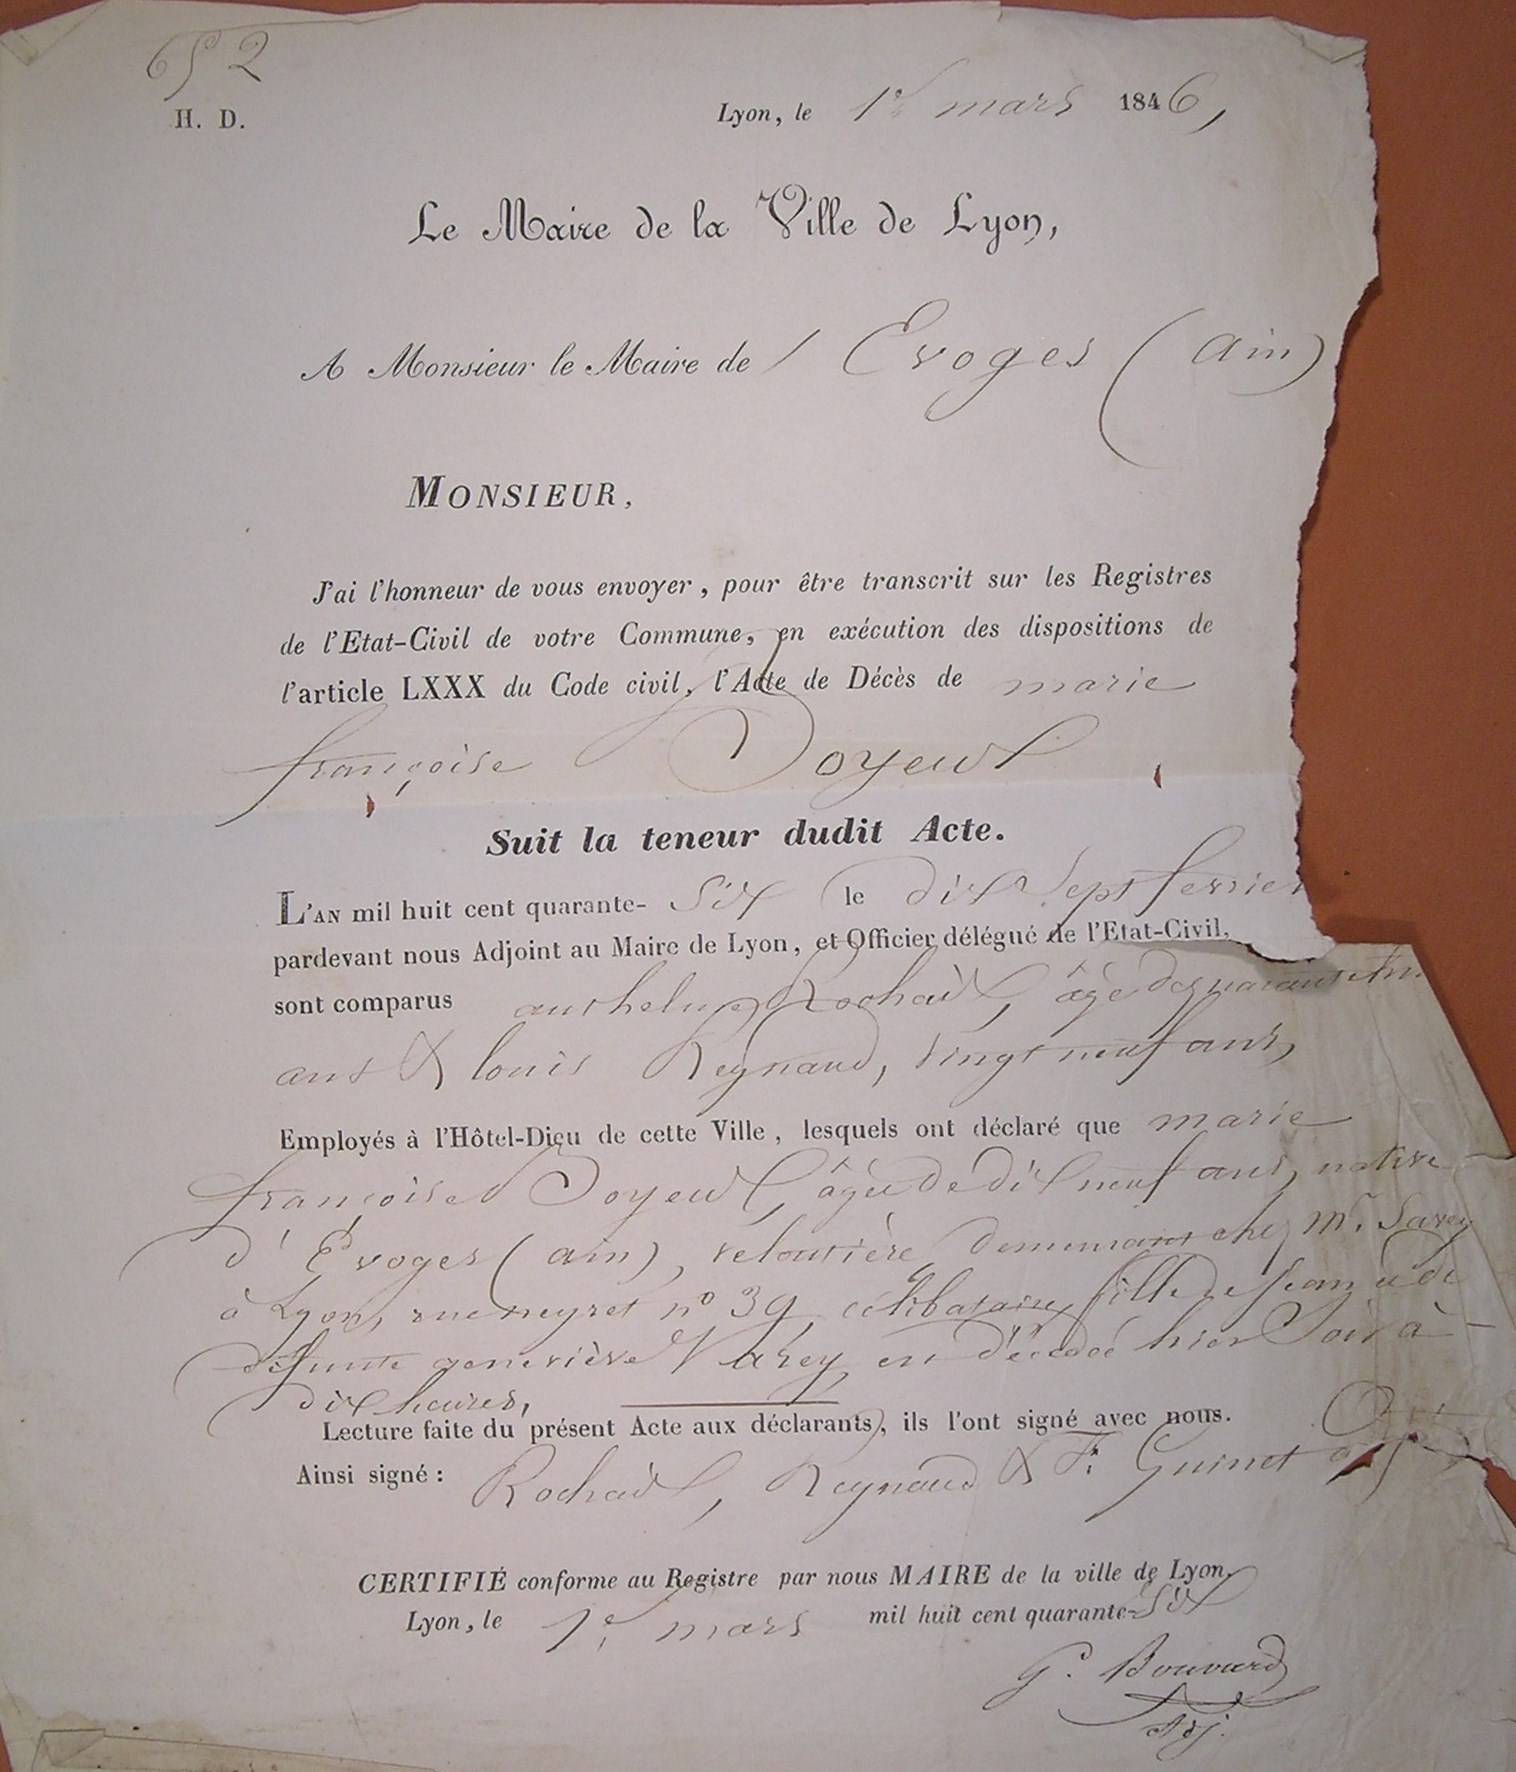 652
H. D.
Lyon, le 1er mars 1846,
Le Maire de la Ville de Lyon,
A Monsieur le Maire de / Evoges (ain)
MONSIEUR,
J'ai l'honneur de vous envoyer, pour être transcrit sur les Registres
de l'Etat-Civil de votre Commune, en exécution des dispositions de
l'article LXXX du Code civil, l'Acte de Décès de marie
françoise Doyeux
Suit la teneur dudit Acte.
L'AN mil huit cent quarante- Six le dix Sept fevrier
pardevant nous Adjoint au Maire de Lyon, et Officier délégué de l'Etat-Civil,
sont comparus anthelme Rochaix, âgé de quarante
ans & louis Reynaud, vingt neuf ans,
Employés à l'Hôtel-Dieu de cette Ville, lesquels ont déclaré que marie
françoise Doyeux, âgée de dix neuf ans, native
d'Evoges (ain), veloutière, demeurant chez Mr. Savey
à Lyon, rue neyret no 39, célibataire, fille de Jean & de
defunte geneviève Varey, en décédée hier Soir à
dix heures,
Lecture faite du présent Acte aux déclarants, ils l'ont signé avec nous.
Ainsi signé : Rochaix, Reynaud & F. Guinet adj
CERTIFIÉ conforme au Registre par nous MAIRE de la ville de Lyon,
Lyon, le 1er mars mil huit cent quarante-Six
G. Bouvard
Adj.